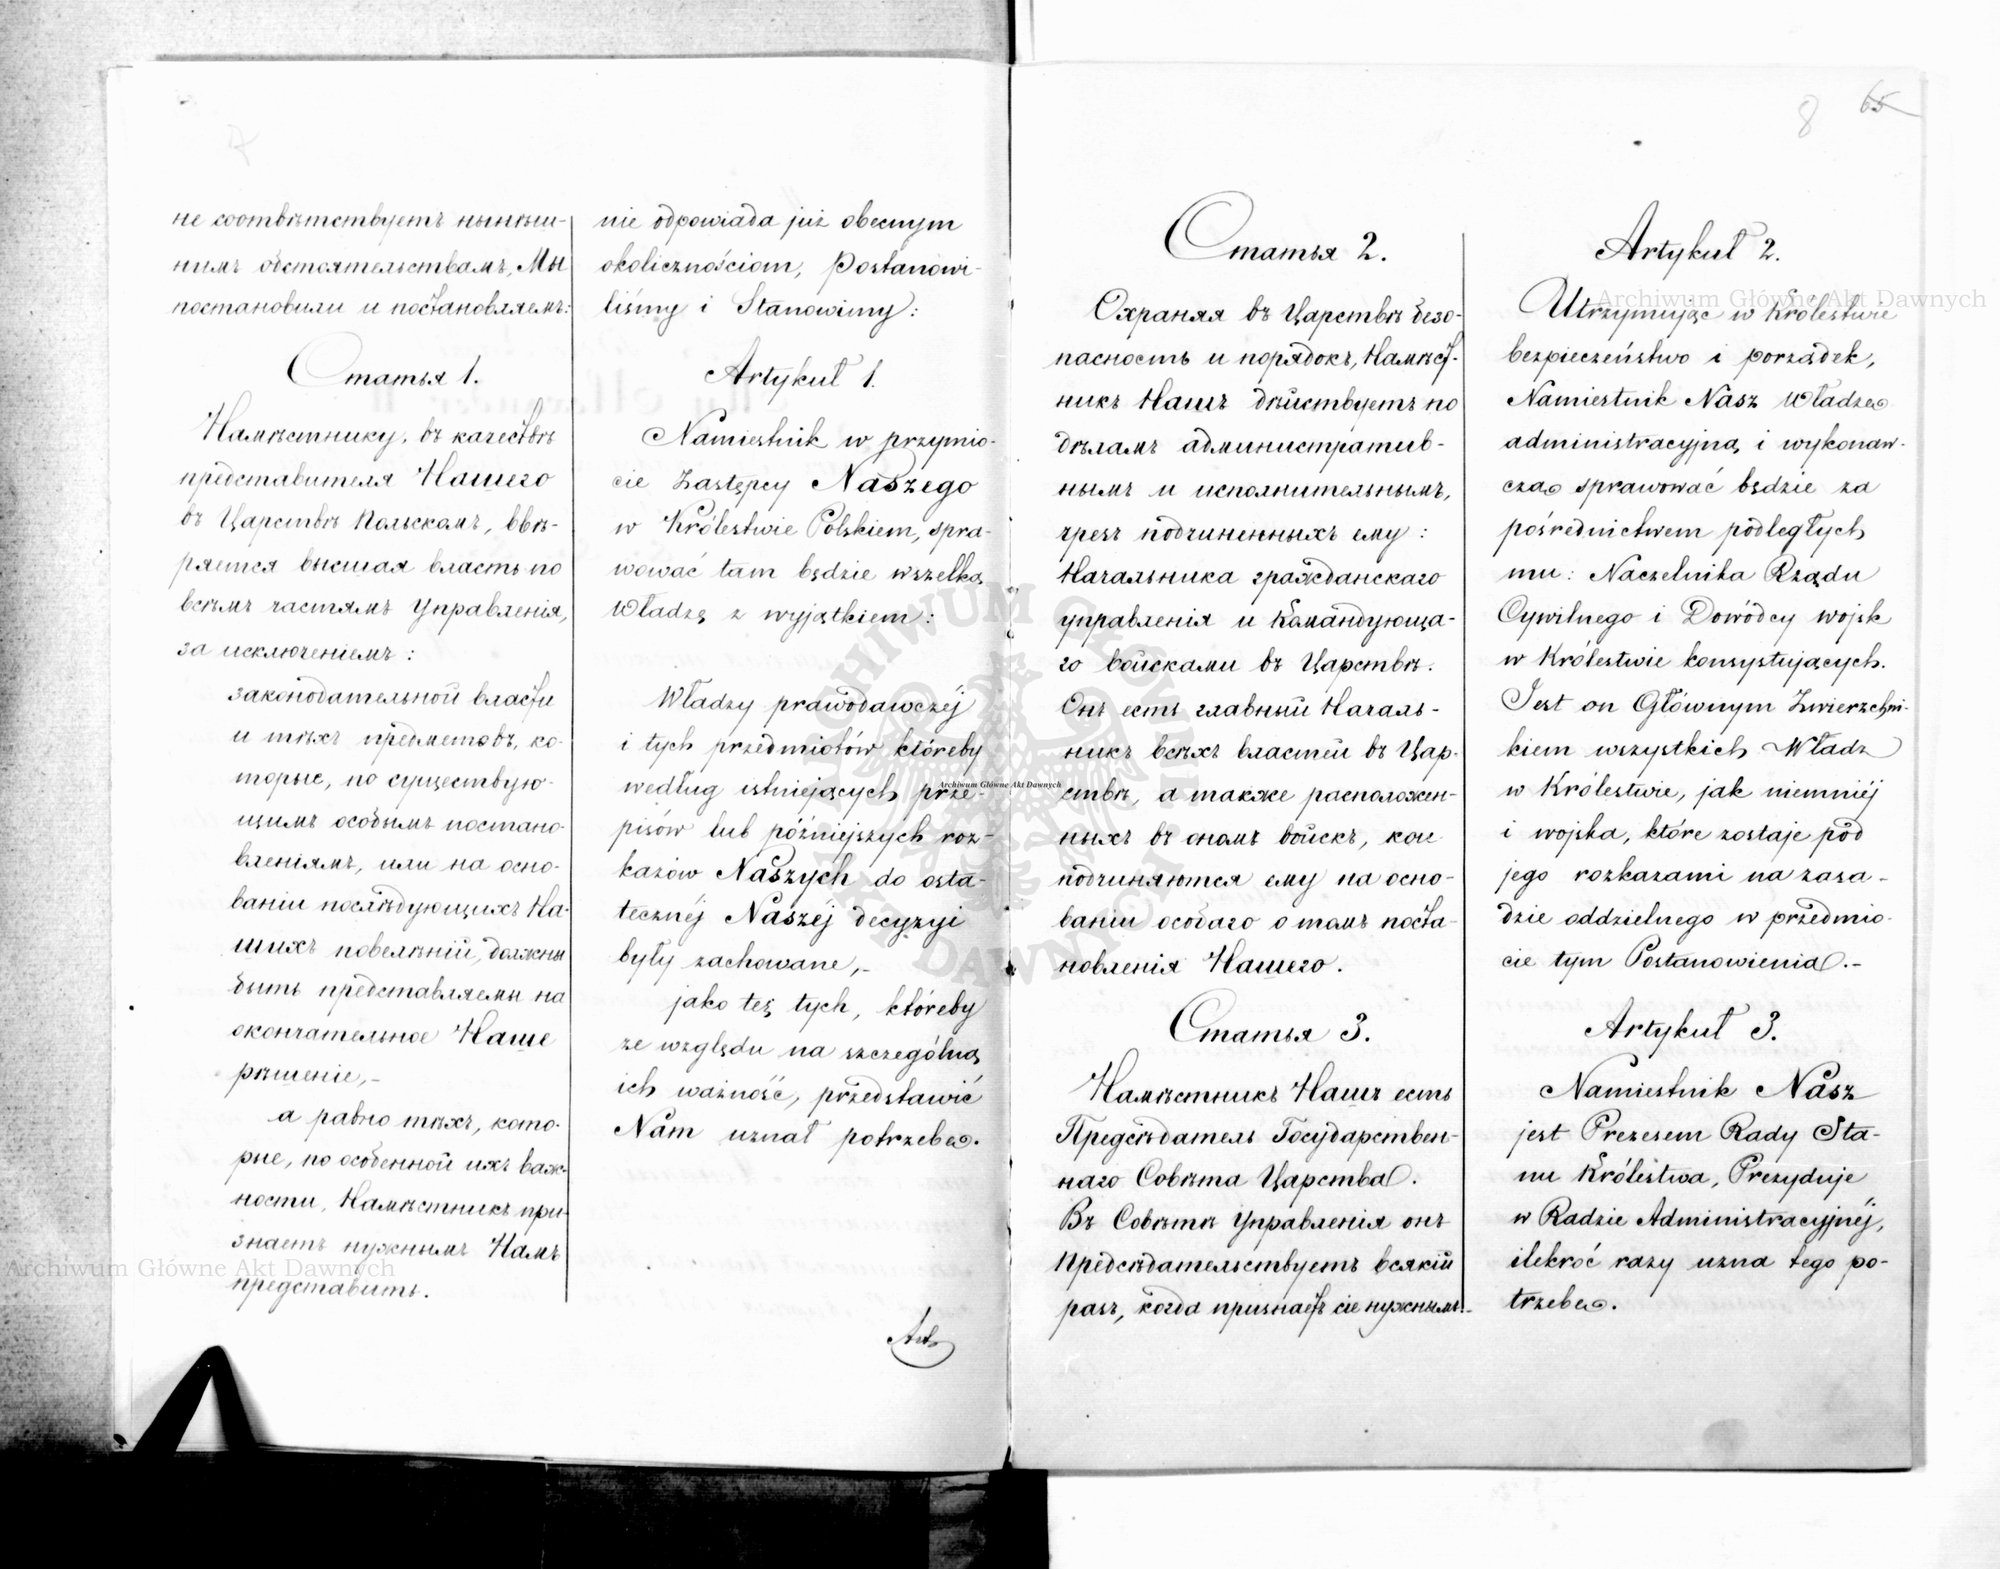 не соотвѣтствуетъ нынѣш-
нимъ обстоятельствамъ, Мы
постановили и постановляемъ:
Статья 1.
Намѣстнику, въ качествѣ
представителя Нашего
въ Царствѣ Польскомъ, ввѣ-
ряется высшая власть по
всѣмъ частямъ Управленія,
за исключеніемъ:
законодательной власти
и тѣхъ предметовъ, ко-
торые, по существую-
щимъ особымъ постано-
вленіямъ, или на осно-
ваніи послѣдующихъ На-
шихъ повелѣній, должны
быть представляемы на
окончательное Наше
рѣшеніе,-
а равно тѣхъ, кото-
рые, по особенной ихъ важ-
ности, Намѣстникъ при-
знаетъ нужнымъ Намъ
представить.
nie odpowiada już obecnym
okolicznościom, Postanowi-
liśmy i Stanowimy:
Artykuł 1.
Namiestnik w przymio-
cie Zastępcy Naszego
w Królestwie Polskiem, spra-
wować tam będzie wszelką
Władzę z wyjątkiem:
Władzy prawodawczéj
i tych przedmiotów któreby
według istniejących prze-
pisów lub późniejszych roz-
kazów Naszych do osta-
tecznéj Naszéj decyzyi
były zachowane,-
jako też tych, któreby
ze względu na szczególną
ich ważność, przedstawić
Nam uznał potrzebę.
Art.
8 65
Статья 2.
Охраняя въ Царствѣ безо-
пасность и порядокъ, Намѣст-
никъ Нашъ дѣйствуетъ по
дѣламъ административ-
нымъ и исполнительнымъ,
чрезъ подчиненныхъ ему:
Начальника гражданскаго
управленія и Командующа-
го войсками въ Царствѣ.
Онъ есть главный Началь-
никъ всѣхъ властей въ Цар-
ствѣ, а также расположен-
ныхъ въ ономъ войскъ, кои
подчиняются ему на осно-
ваніи особаго о томъ поста-
новленія Нашего.
Статья 3.
Намѣстникъ Нашъ есть
Предсѣдатель Государствен-
наго Совѣта Царства.
Въ Совѣтѣ Управленія онъ
Предсѣдательствуетъ всякій
разъ, когда признаетъ сіе нужнымъ.
Artykuł 2.
Utrzymując w Królestwie
bezpieczeństwo i porządek,
Namiestnik Nasz Władzę
administracyjną i wykonaw-
czą sprawować będzie za
pośrednictwem podległych
mu: Naczelnika Rządu
Cywilnego i Dowódcy wojsk
w Królestwie konsystujących.
Jest on Głównym Zwierzchni-
kiem wszystkich Władz
w Królestwie, jak niemniéj
i wojska, które zostaje pod
jego rozkazami na zasa-
dzie oddzielnego w przedmio-
cie tym Postanowienia.-
Artykuł 3.
Namiestnik Nasz
jest Prezesem Rady Sta-
nu Królestwa, Prezyduje
w Radzie Administracyjnéj,
ilekroć razy uzna tego po-
trzebę.
Archiwum Główne Akt Dawnych
Archiwum Główne Akt Dawnych
Archiwum Główne Akt Dawnych
ARCHIWUM GŁÓWNE AKT DAWNYCH